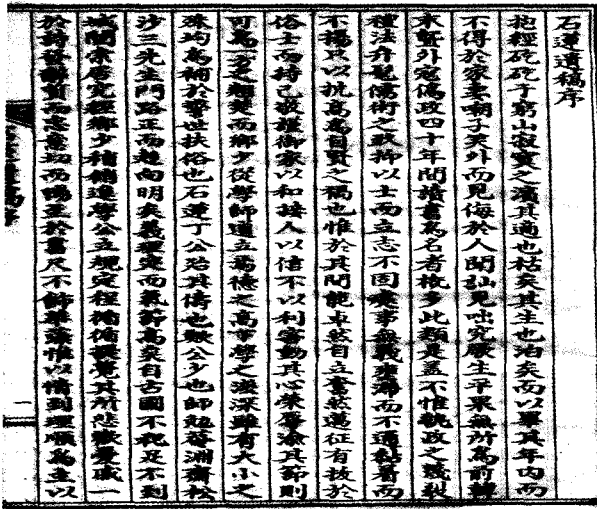 石蓮遺稿序
抱經矻矻于窮山寂寞之濱其適也枯矣其生也治矣而以畢其年內而
不得於家妻嘲子哭外而見侮於人聞訕見咄究厥生平果無所為前
末暫外寇偽政四十年間讀書為名者枚多此類是盖不惟執政之殘裂
禮法弁髦儒術之政抑以士而立志不固處事無義壅滯而不通黏著而
不揚只以抗高為自賢之獨也惟於其間能卓然自立奮然邁征有拔於
俗士而持己嚴謹御家以和接人以信不以利害動其心榮辱渝其節則
可為一方之類雙而鄉少從學師道立焉德之高下學之淺深雖有大小之
殊均為補於警世扶俗也石蓮丁公殆其儔也歟公少也師趙莓淵齋松
沙三先生門路正而趨向明矣義理實而氣節高矣自古固不祀足不到
城闉索居究經鄉少稍稍進學公立規定程循循提覺其所悲歡憂戚一
於詩發酬質而志意切而鳴至於書尺不飾華藻惟以情到理順為主以
二